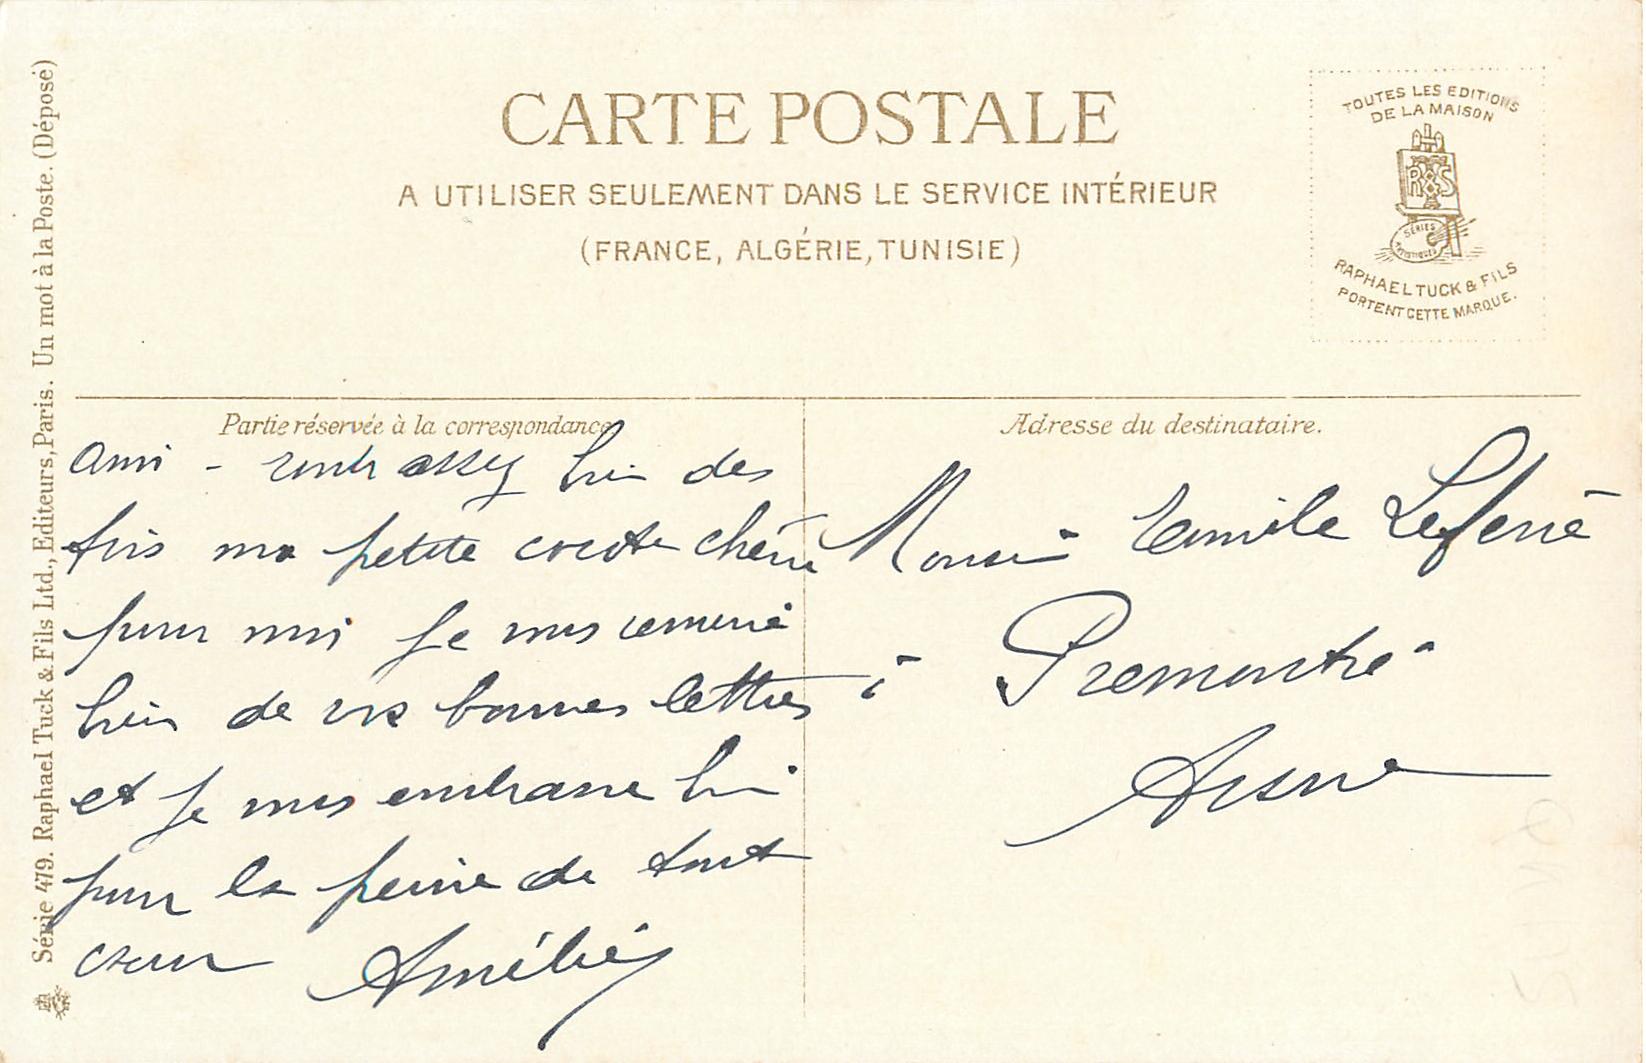 CARTE POSTALE
A UTILISER SEULEMENT DANS LE SERVICE INTÉRIEUR
(FRANCE, ALGÉRIE, TUNISIE)
TOUTES LES EDITIONS
DE LA MAISON
R S
SÉRIES
ARTISTIQUES
RAPHAEL TUCK & FILS
PORTENT CETTE MARQUE.
Série 479. Raphael Tuck & Fils Ltd., Editeurs, Paris. Un mot à la Poste. (Déposé)
Partie réservée à la correspondance
ami - assez bien des
fois ma petite cocote chérie
pour moi je vous remercie
bien de vos bonnes lettres
et je vous embrasse bien
pour la peine de tout
cœur Amélie
Adresse du destinataire.
Monsieur Emile
à Premontré
Aisne